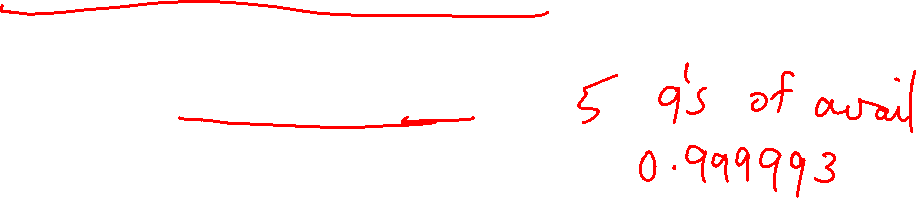 5 9's of avail
0.999993